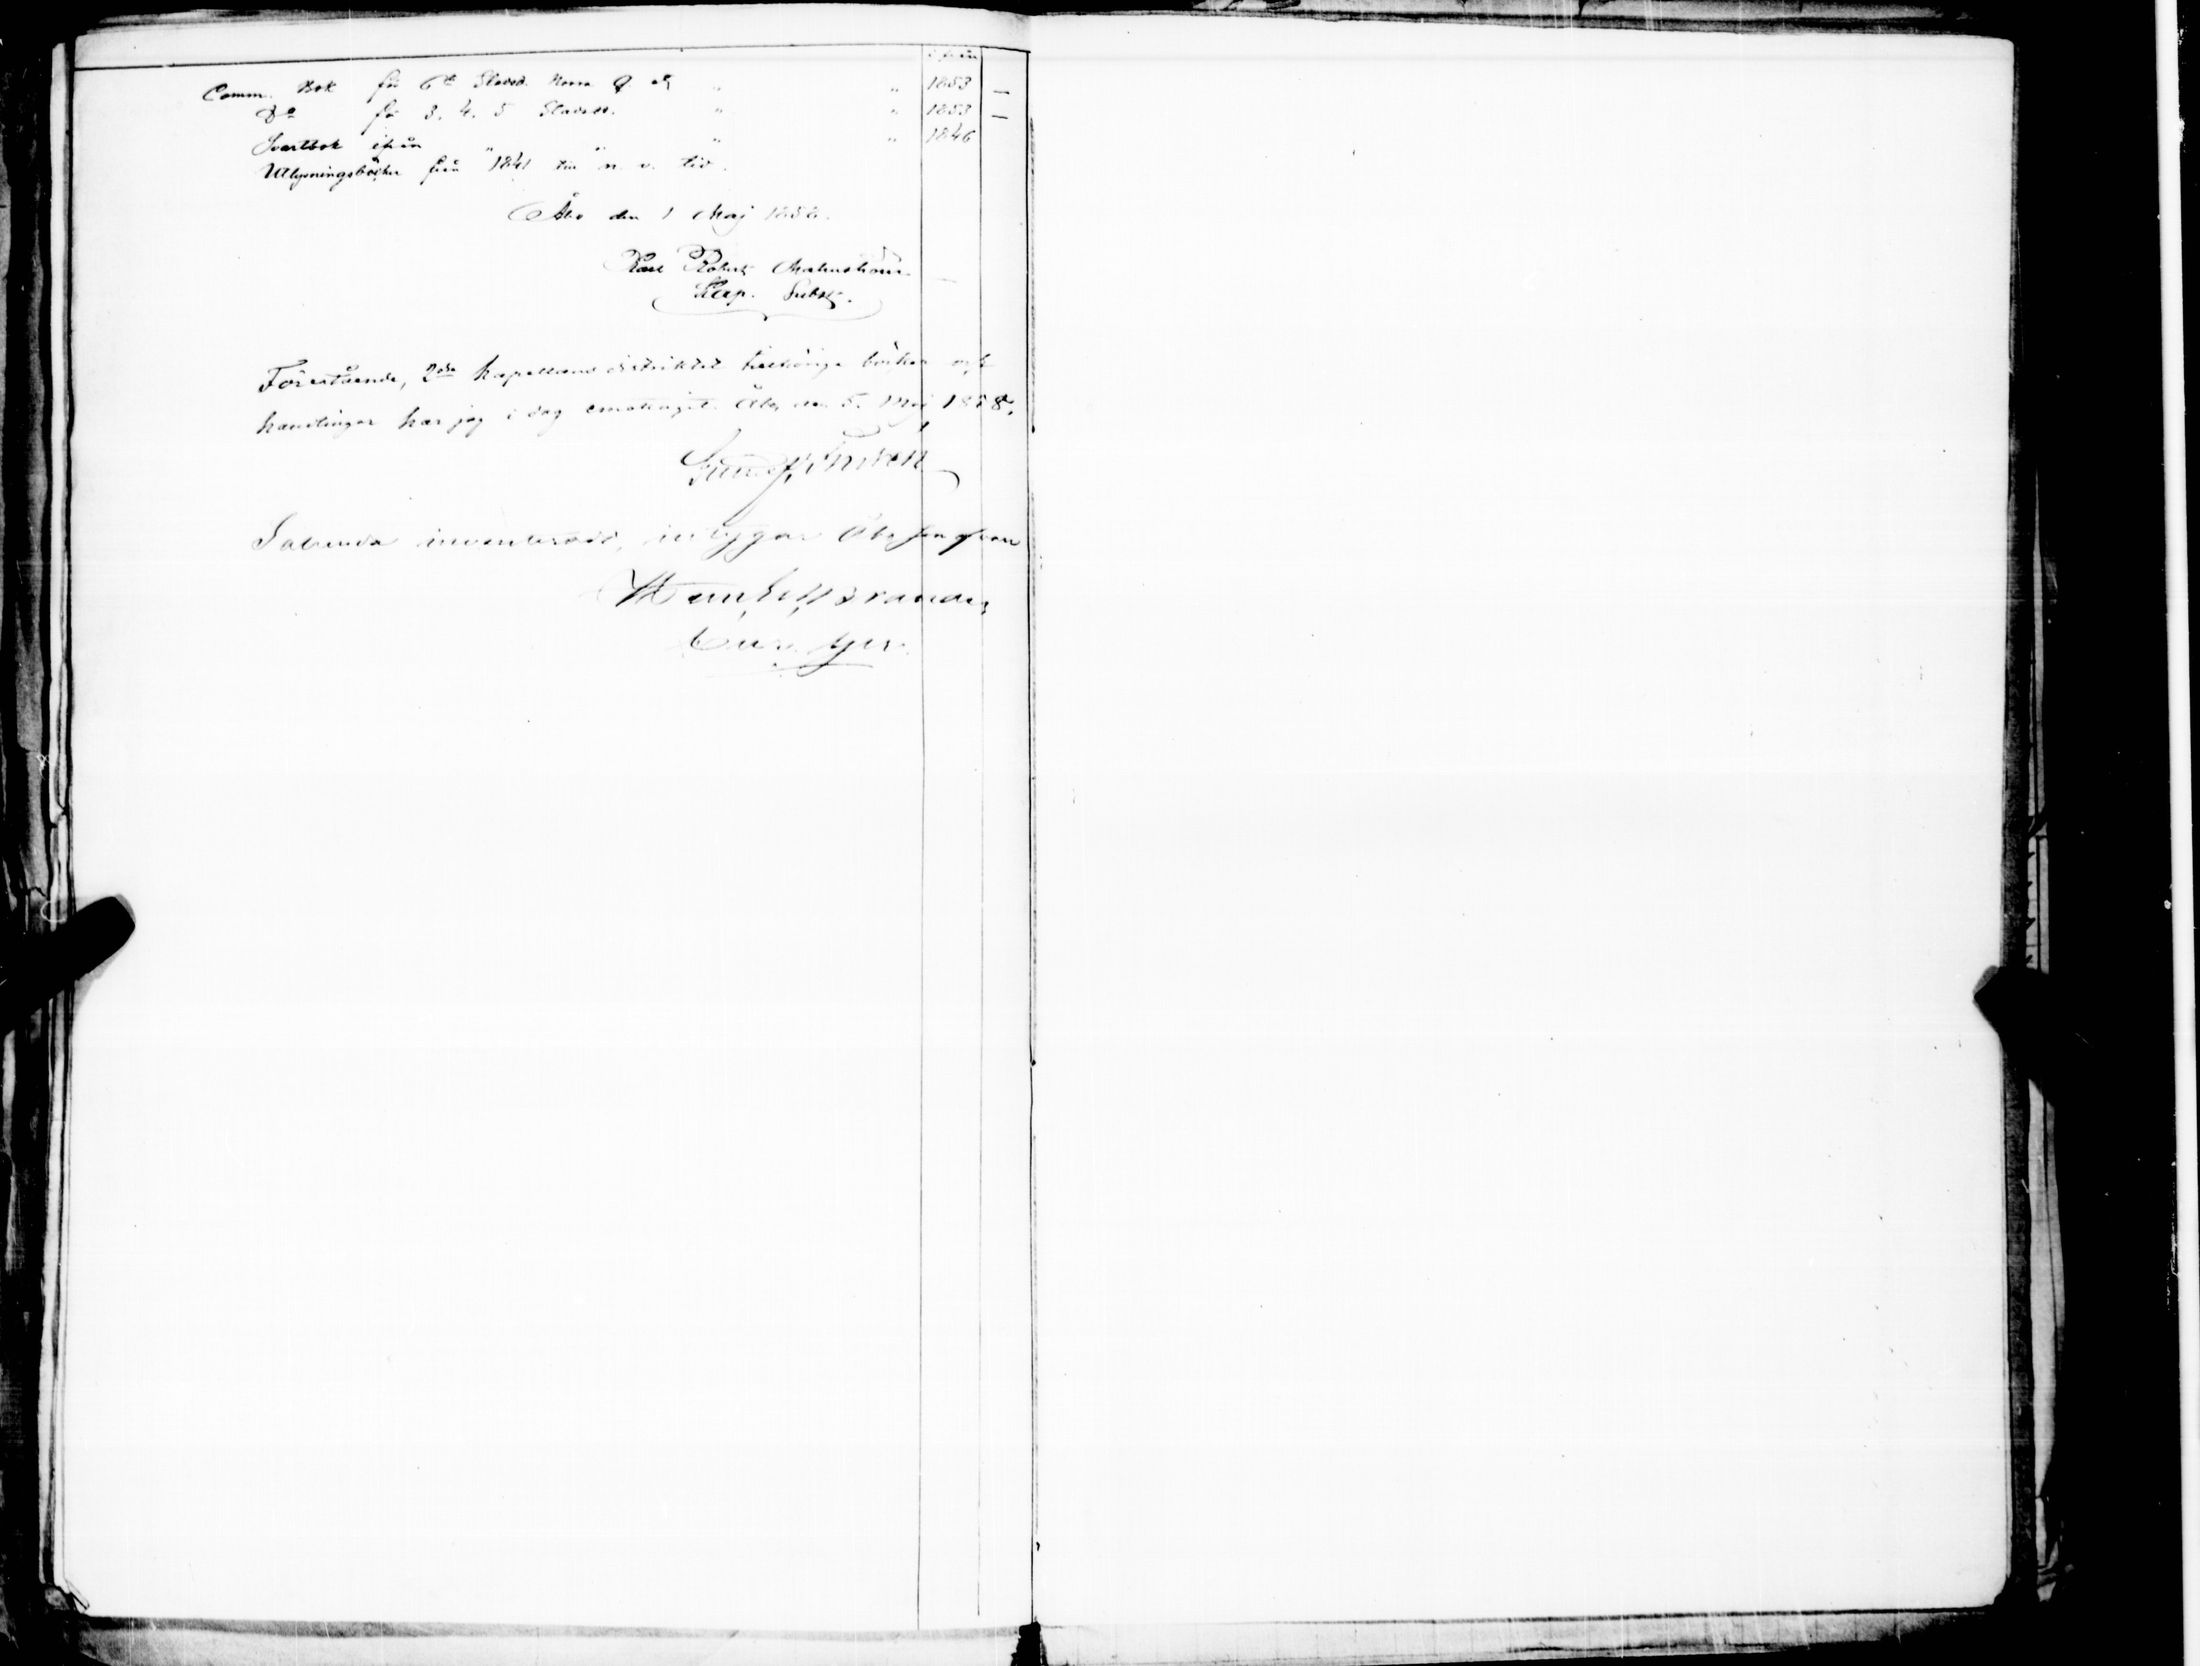 ifrån
Comm. Bok för 6te Stadsd. Norra q. " " 1853 —
Do för 3. 4. 5 Stadsd. " " 1853 —
Svartbok ifrån " " " " 1846
Utlysningsböcker från 1841 till n. v. tid.
Åbo den 1 Maj 1858.
Karl Robert Malmström
Kap. Subst.
Förestående, 2dra kapellansdistriktet tillhöriga böcker och
handlingar har jag i dag emottagit. Åbo, den 5. Maj 1858.
Salunda inventeradt, intygar Åbo som ofvan